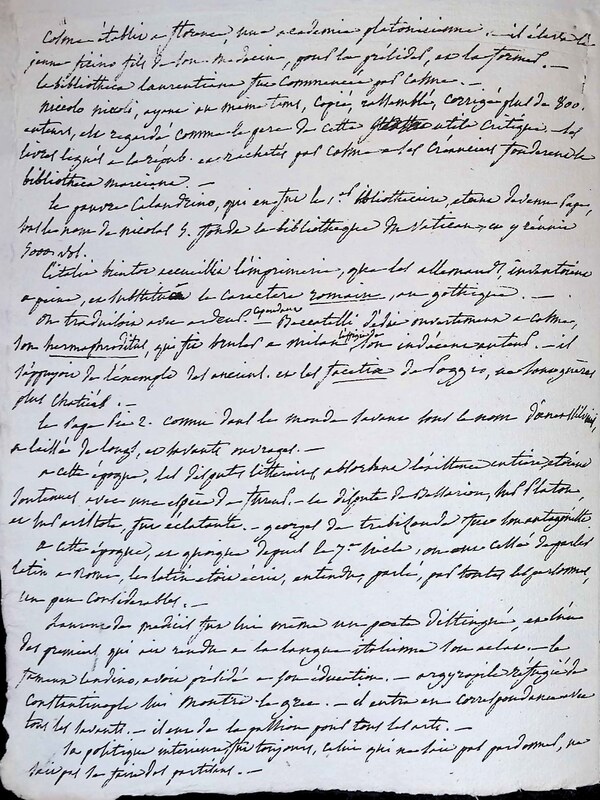 Cosme établit a florence, une academie platonicienne. — il éleve le
jeune ficino fils de son medecin, pour la présider, et la former. —
la bibliotheca laurentiana fut commencée par Cosme. —
niccolo niccoli, ayant en meme tems, copié, rassemblé, corrigé plus de 800.
auteurs, est regardé comme le pere de cette utile critique. — les
livres légués a la répub. et rachetés par Cosme a les creanciers fonderent la
bibliotheca marciana —
le pauvre Calandrino, qui en fut le 1.er bibliothecaire, etant devenu Pape,
sous le nom de nicolas 5. fonda la bibliotheque du Vatican, et y réunit
5000 vol.
L'italie bientot accueillit l'imprimerie, que les allemands inventoient
a peine, et substitua le caractere romain, au gothique. —
on traduisoit avec ardeur. — cependant Beccatelli dédia ouvertement a Cosme,
son hermaphroditus, qui fut brulé a milan son indécent auteur. — il
s'appuyoit de l'exemple des anciens. et les facetiae de Poggio, ne sont gueres
plus chastes. —
le Pape Pie 2. connu dans le monde savant sous le nom d'Aeneas Silvius,
a laissé de longs, et savants ouvrages. —
a cette époque, les disputes litteraires, absorboient l'existence entiere, et étoient
soutenues avec une espèce de fureur. — la dispute de Bessarion, sur Platon,
et sur aristote, fut éclatante. — georges de trebisonde fut son antagoniste
a cette époque, et quoique depuis le 7.me siecle, on eut cessé de parler
latin a Rome, le latin etoit écrit, entendu, parlé, par toutes les personnes,
un peu considerables. —
Laurent de medicis fut lui même un poete distingué, et l'un
des premiers qui ait rendu a la langue italienne son eclat. — le
fameux landino, avoit présidé a son éducation. — argyropile réfugié de
Constantinople lui montra le grec. — il entra en correspondance avec
tous les savants. — il eut de la passion pour tous les arts. —
sa politique interieure fut toujours, celui qui ne sait pas pardonner, ne
sait pas se faire des partisans. —